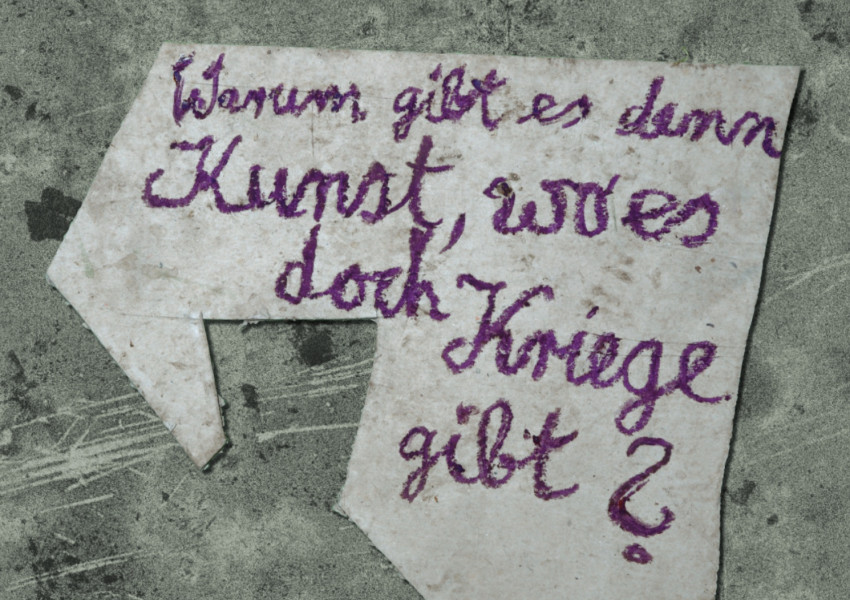 Warum gibt es denn
Kunst, wo es
doch Kriege
gibt?